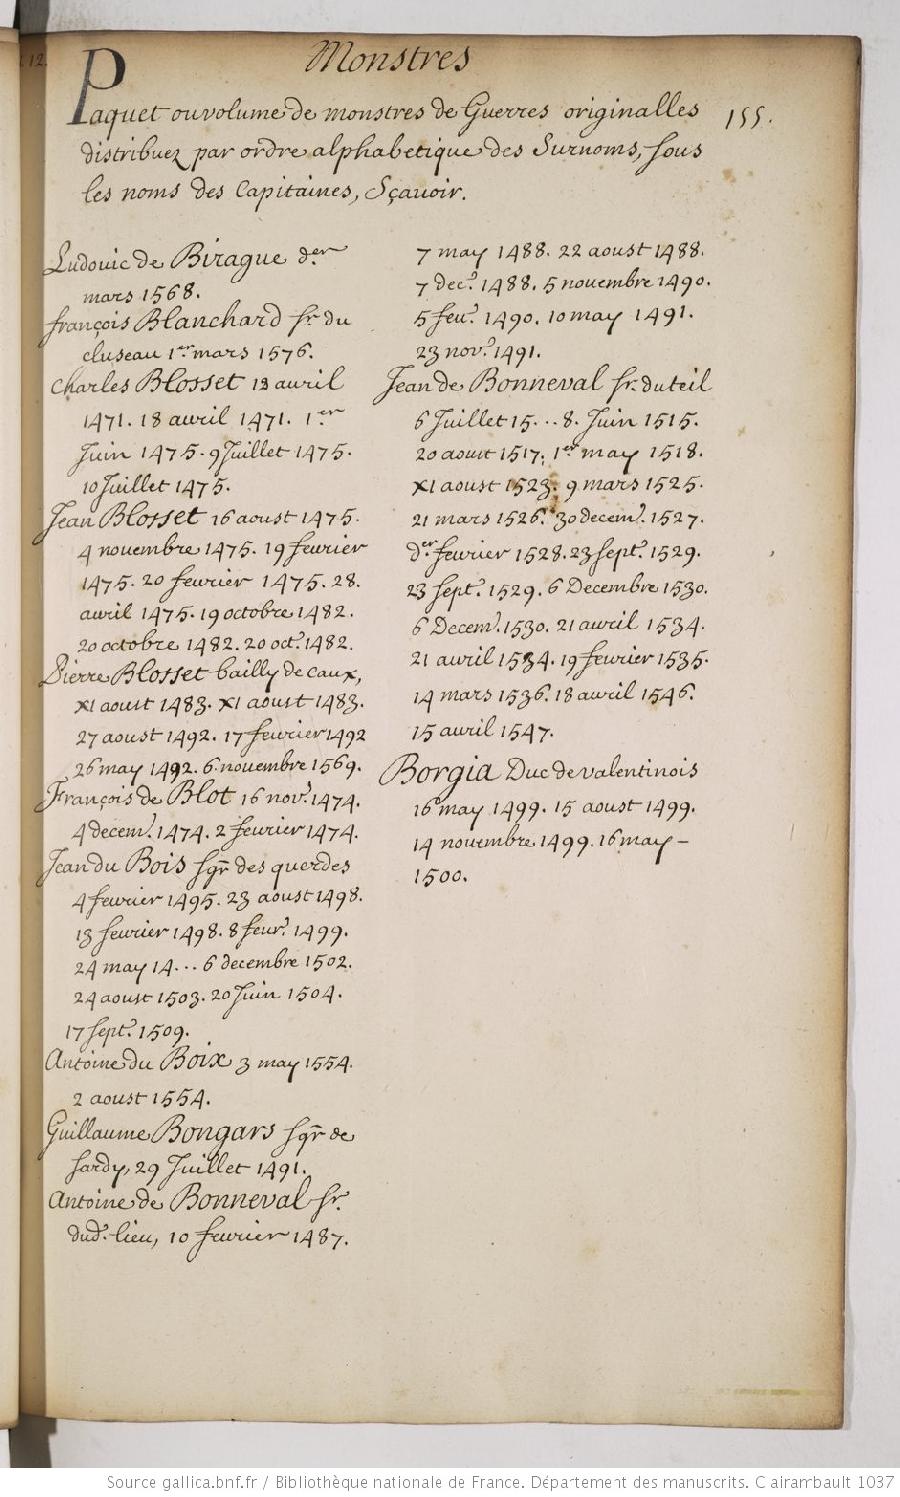 Monstres
155.
Paquet ou volume de monstres de Guerres originalles
distribuez par ordre alphabetique des Surnoms, sous
les noms des Capitaines, Sçauoir.
Ludouic de Birague der
mars 1568.
françois Blanchard sr. du
cluseau 1er mars 1576.
Charles Blosset 18 auril
1471. 18 auril 1471. 1er
Juin 1475. 9 Juillet 1475.
10 Juillet 1475.
Jean Blosset 16 aoust 1475.
4 nouembre 1475. 19 feurier
1475. 20 feurier 1475. 28.
auril 1475. 19 octobre 1482.
20 octobre 1482. 20 oct. 1482.
Pierre Blosset bailly de caux,
XI aoust 1483. XI aoust 1483.
27 aoust 1492. 17 feurier 1492
26 may 1492. 6 nouembre 1569.
François de Blot 16 nov. 1474.
4 decem. 1474. 2 feurier 1474.
Jean du Bois sgr des querdes
4 feurier 1495. 23 aoust 1498.
13 feurier 1498. 8 feur. 1499.
24 may 14... 6 decembre 1502.
24 aoust 1503. 20 Juin 1504.
17 sept. 1509.
Antoine du Boix 3 may 1554.
2 aoust 1554.
Guillaume Bongars sgr de
sardy, 29 Juillet 1491.
Antoine de Bonneval sr.
dud. lieu, 10 feurier 1487.
7 may 1488. 22 aoust 1488.
7 dec. 1488. 5 nouembre 1490.
5 feu. 1490. 10 may 1491.
23 nov. 1491.
Jean de Bonneval sr. du teil
6 Juillet 15... 8. Juin 1515.
20 aoust 1517. 1er may 1518.
XI aoust 1523. 9 mars 1525.
21 mars 1526. 30 decem. 1527.
der feurier 1528. 23 sept. 1529.
23 sept. 1529. 6 Decembre 1530.
6 Decem. 1530. 21 auril 1534.
21 auril 1534. 19 feurier 1535.
14 mars 1536. 18 auril 1546.
15 auril 1547.
Borgia Duc de valentinois
16 may 1499. 15 aoust 1499.
14 nouembre 1499. 16 may –
1500.
Source gallica.bnf.fr / Bibliothèque nationale de France. Département des manuscrits. Clairambault 1037